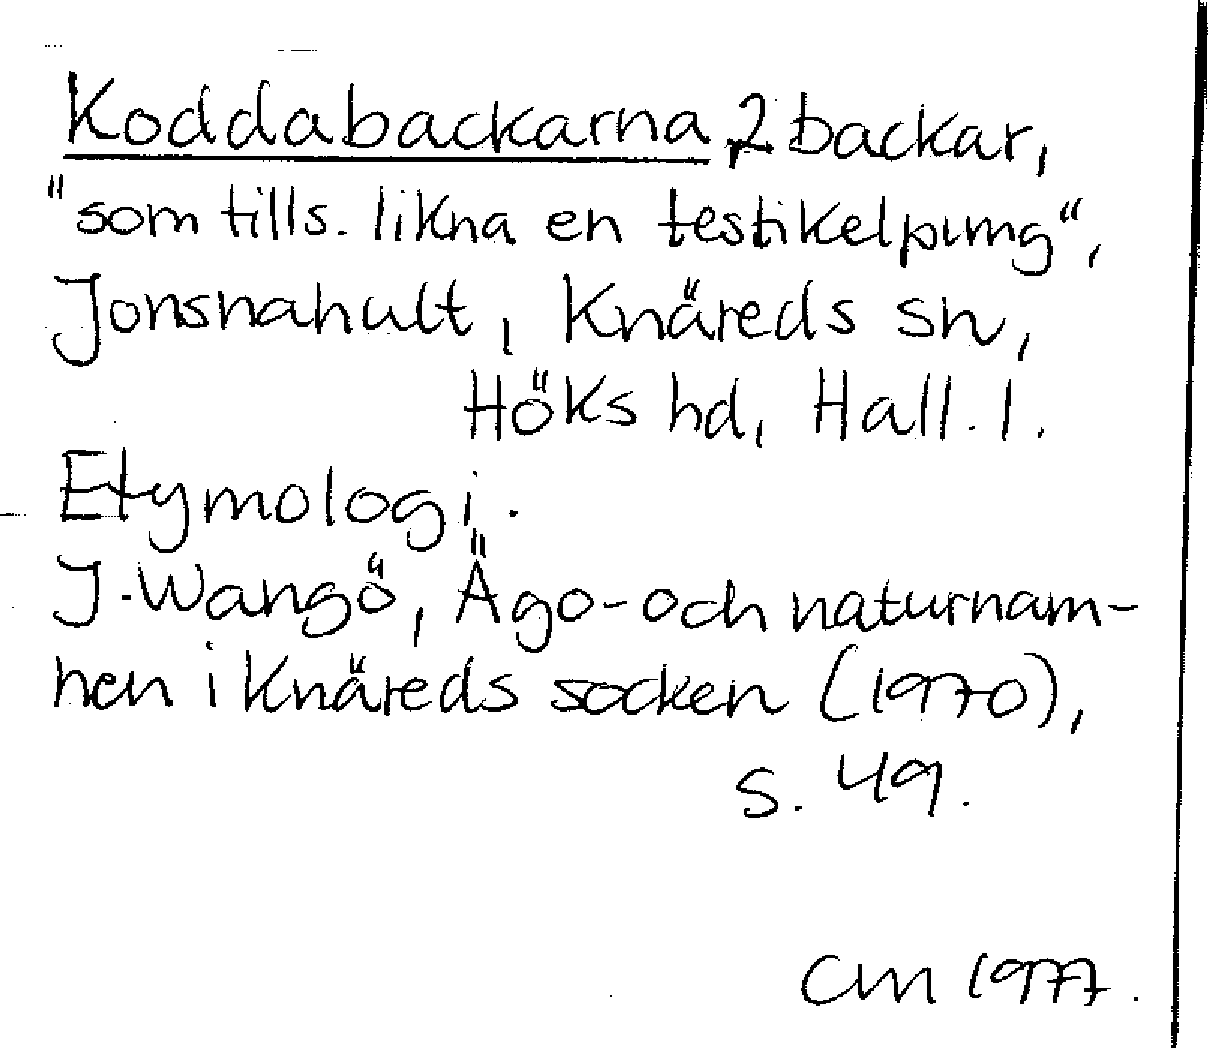 Koddabackarna, 2 backar,
"som tills. likna en testikelpung",
Jonsnahult, Knäreds sn,
Höks hd, Hall. l.
Etymologi.
J. Wangö, Ägo- och naturnam-
nen i Knäreds socken (1970),
s. 49.
CM 1977.